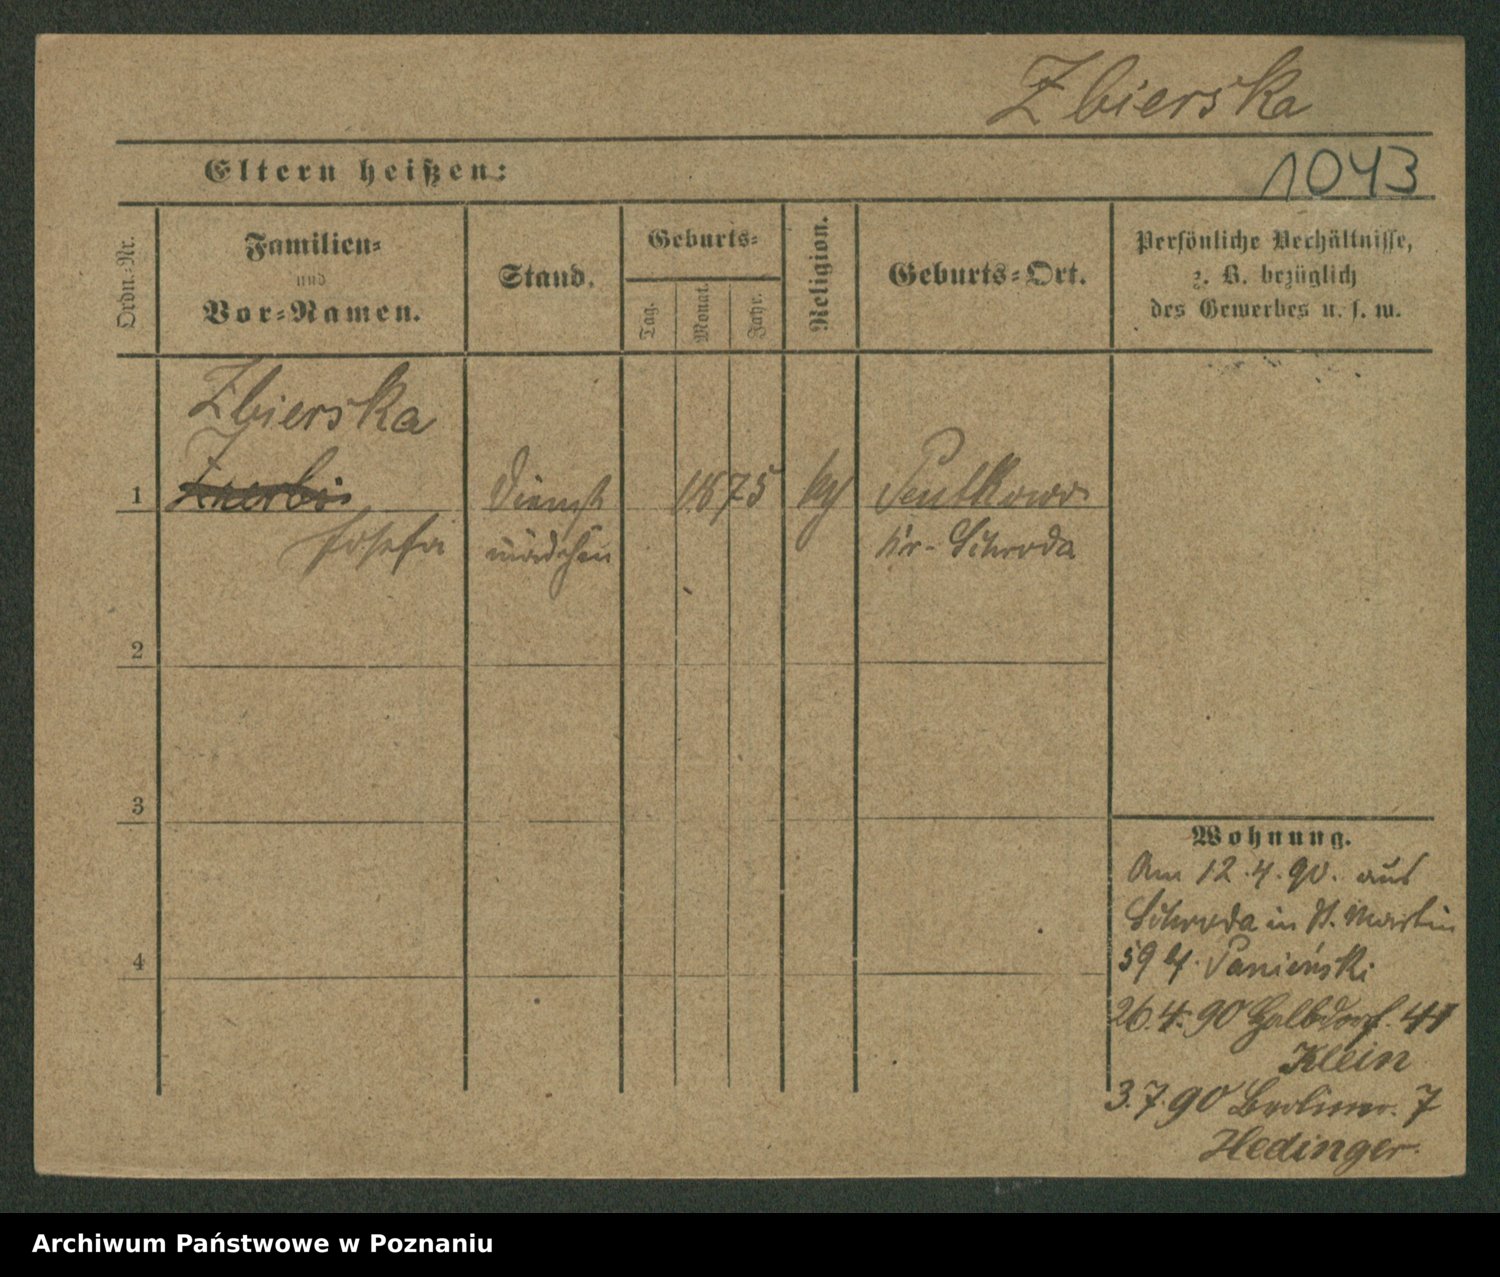 Zbierska
Eltern heißen:
1043
Ordn.-Nr.
Familien-
und
Vor-Namen.
Stand.
Geburts-
Tag.
Monat.
Jahr.
Religion.
Geburts-Ort.
Persönliche Verhältnisse,
z. B. bezüglich
des Gewerbes u. s. w.
Zbierska
1 Dienst 1875 Pentkowo
Josefa mädchen Kr. Schroda
2
3
4
Wohnung.
Am 12.4.90. aus
Schroda in St. Martin
59 Panieński
26.4.90 Halbdorf. 41
Klein
3.7.90 Berliner. 7
Hedinger.
Archiwum Państwowe w Poznaniu